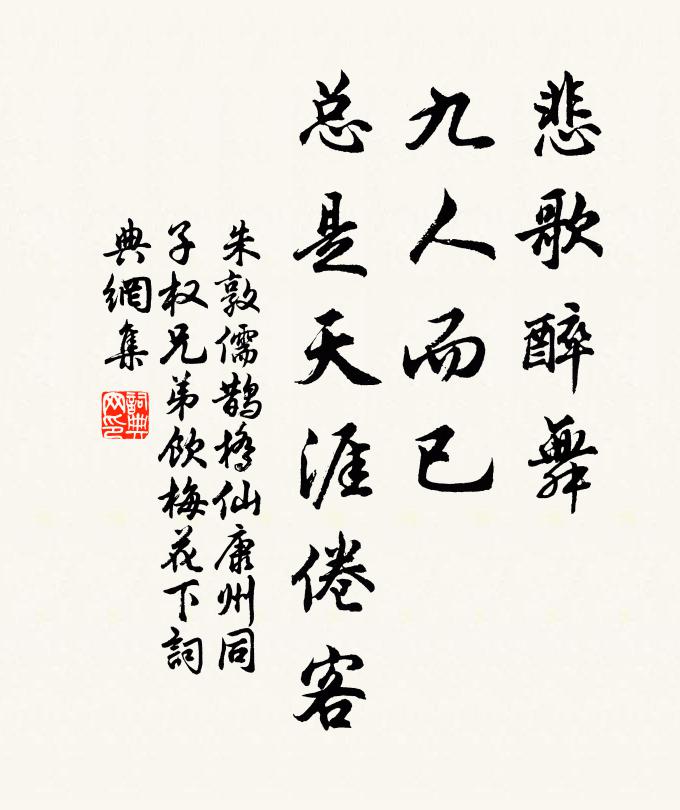 悲歌醉舞
九人而已
总是天涯倦客
朱敦儒鹊橋仙康州同
子权兄弟飲梅花下詞
典網集
詞典
网印